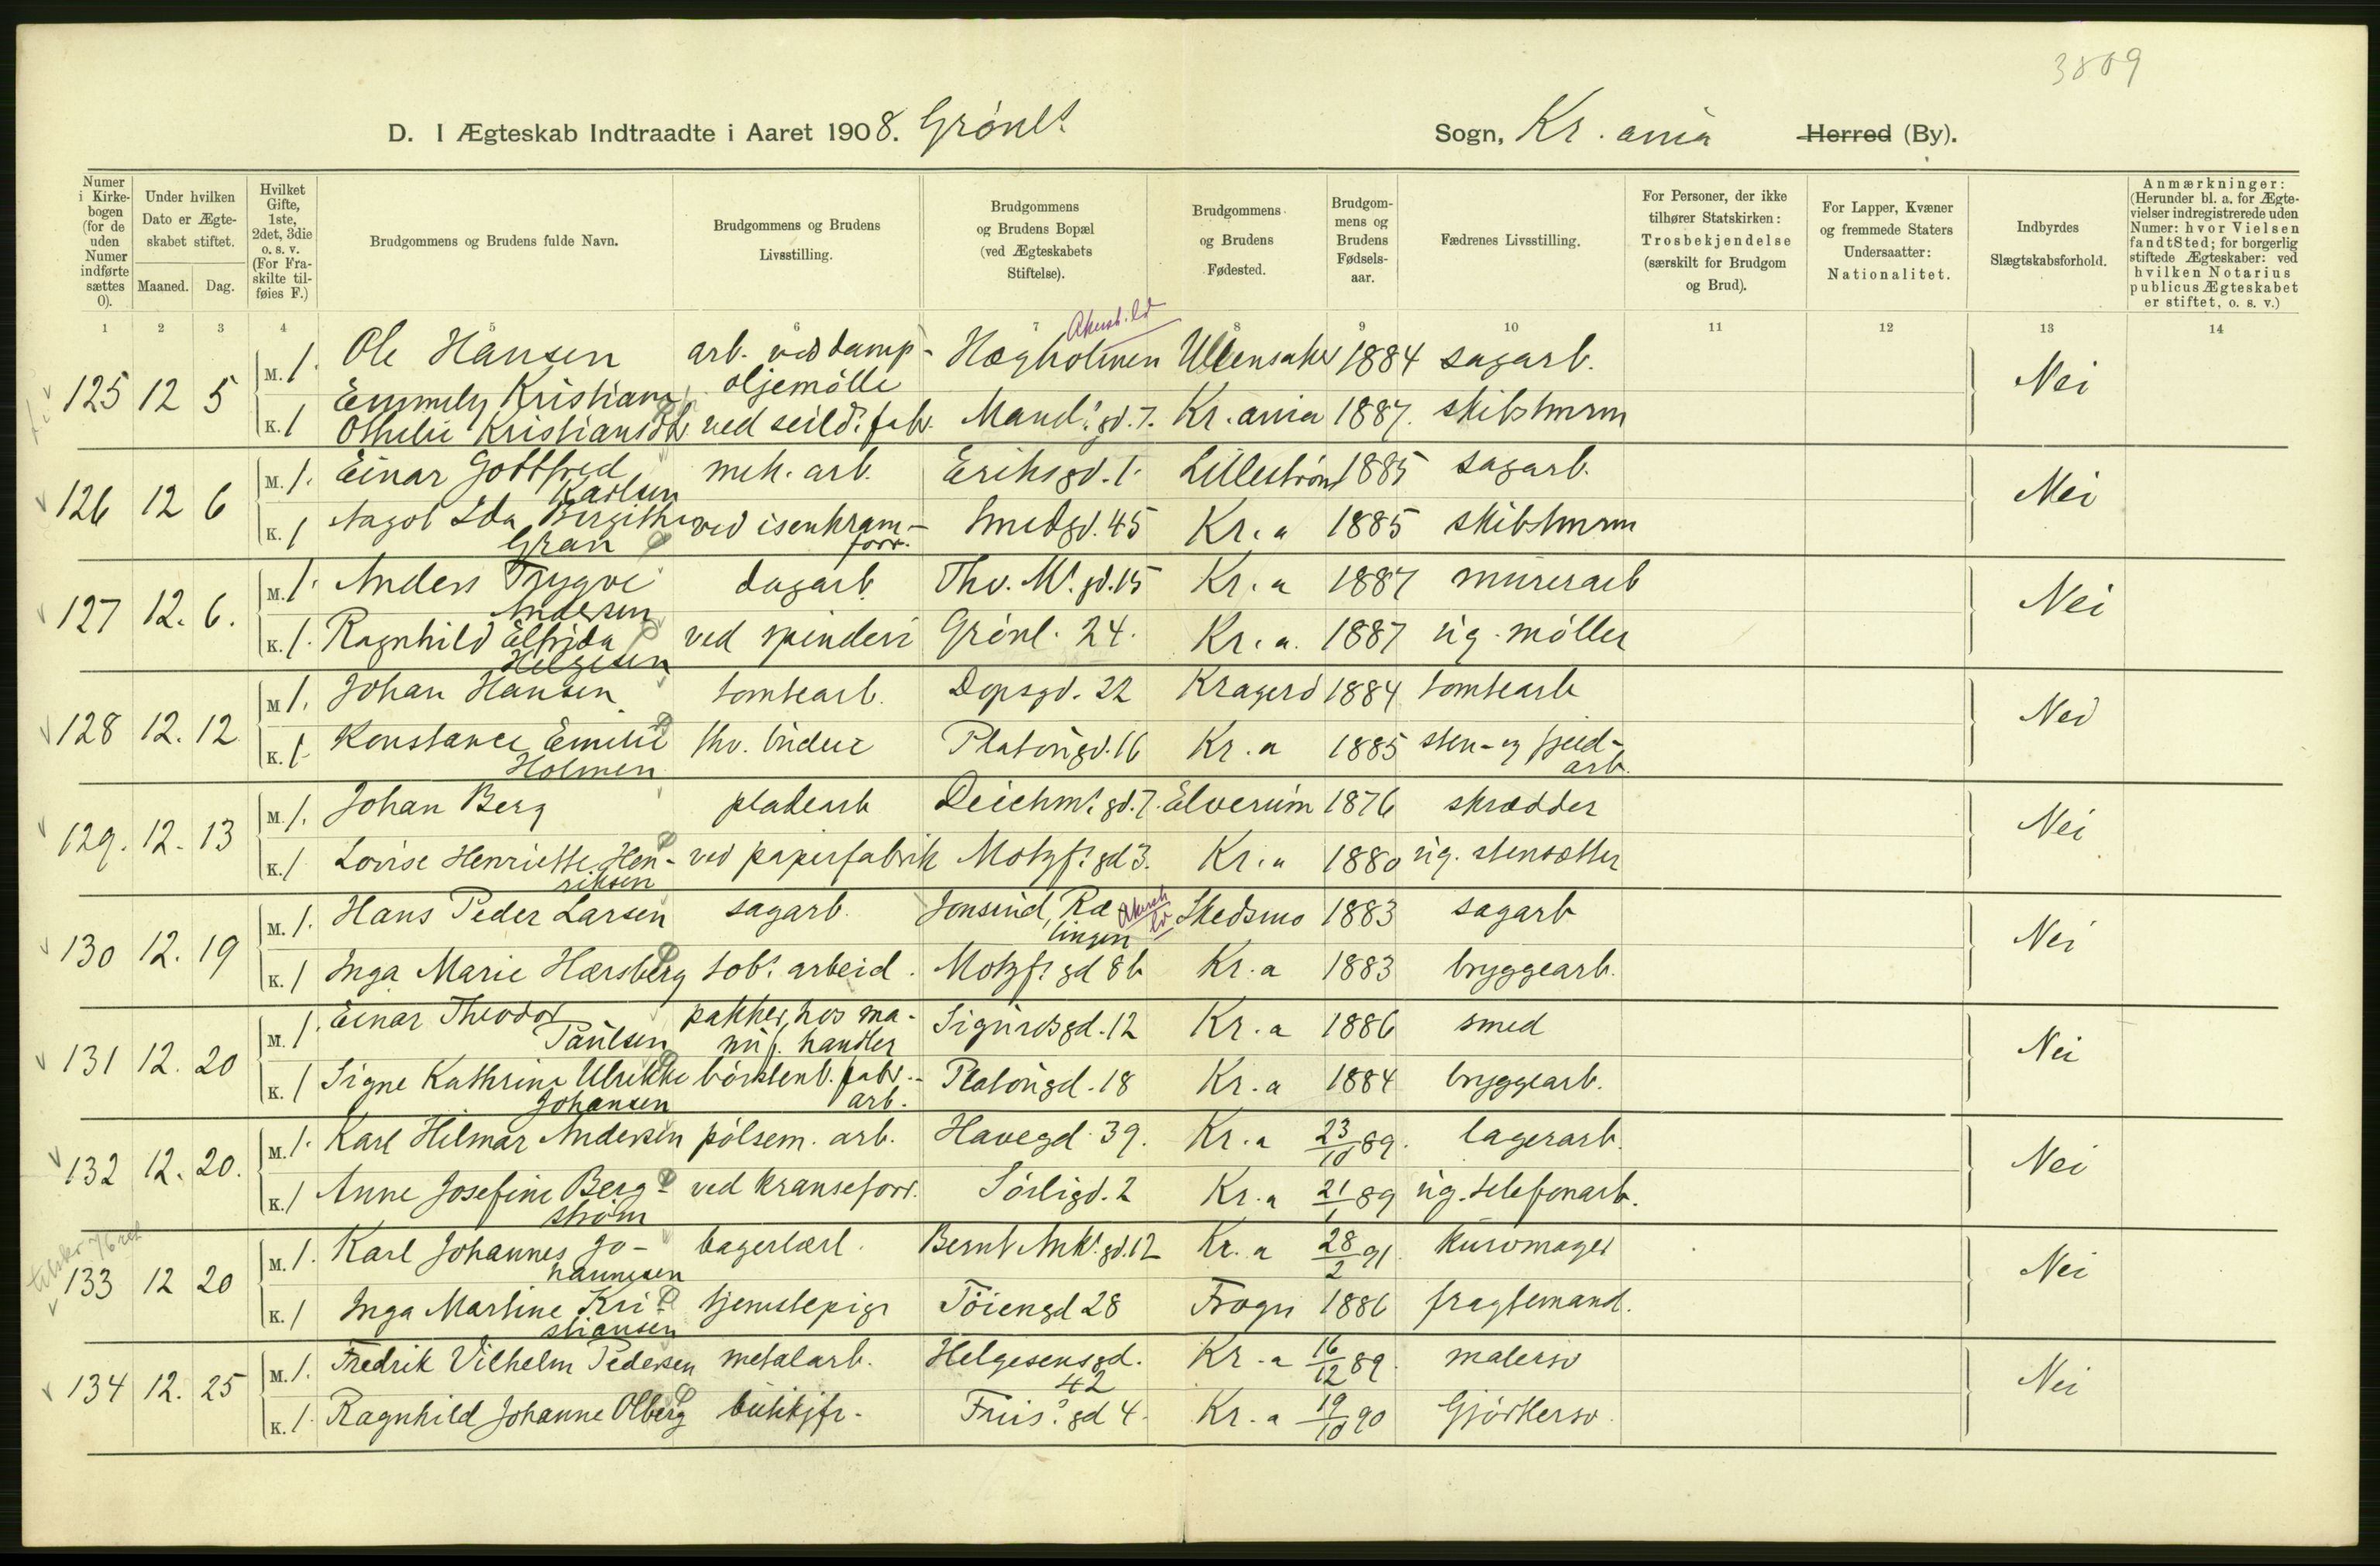 3809
D. I Ægteskab Indtraadte i Aaret 1908. Grønl.s Sogn, Kr.ania Herred (By).
Numer i Kirkebogen (for de uden Numer indførte sættes 0).
Under hvilken Dato er Ægteskabet stiftet.
Maaned. Dag.
Hvilket Gifte, 1ste, 2det, 3die o. s. v. (For Fraskilte tilføies F.)
Brudgommens og Brudens fulde Navn.
Brudgommens og Brudens Livsstilling.
Brudgommens og Brudens Bopæl (ved Ægteskabets Stiftelse).
Brudgommens og Brudens Fødested.
Brudgommens og Brudens Fødselsaar.
Fædrenes Livsstilling.
For Personer, der ikke tilhører Statskirken: Trosbekjendelse (særskilt for Brudgom og Brud).
For Lapper, Kvæner og fremmede Staters Undersaatter: Nationalitet.
Indbyrdes Slægtskabsforhold.
Anmærkninger: (Herunder bl. a. for Ægtevielser indregistrerede uden Numer: hvor Vielsen fandt Sted; for borgerlig stiftede Ægteskaber: ved hvilken Notarius publicus Ægteskabet er stiftet, o. s. v.)
1 2 3 4 5 6 7 8 9 10 11 12 13 14
125 12 5 M. 1. Ole Hansen arb. ved damp-oljemølle Hægholmen Ullensaker 1884 sagarb. Nei
K. 1 Emmely Kristiane Othilie Kristians dtr. ved seild. fabr. Mand.s gd. 7. Kr.ania 1887. skibstmrm
126 12 6 M. 1. Einar Gottfred Karlsen mek. arb. Eriksgd. 1. Lillestrøm 1885 sagarb. Nei
K. 1 Aagot Ida Birgithe Gran ved isenkram-forr. Smedgd. 45 Kr.a 1885 skibstmrm
127 12. 6. M. 1. Anders Trygve Andersen dagarb. Thv. M.s gd. 15 Kr.a 1887 murerarb Nei
K. 1. Ragnhild Elfrida Helgesen ved spinderi Grønl. 24. Kr.a. 1887 ug. møller
128 12. 12 M 1. Johan Hansen tomtearb. Dopsgd. 22 Kragerø 1884 tomtearb Nei
K. 1. Konstance Emilie Holmen Platousgd. 16 Kr.a 1885 sten- og fjeld-arb.
129. 12. 13 M. 1. Johan Berg pladearb Deichm.s gd. 7. Elverum 1876 skrædder Nei
K. 1 Lovise Henriette Hen-riksen ved papirfabrik Motzf.s gd 3. Kr.a 1880 ug. stensætter
130 12. 19 M. 1. Hans Peder Larsen sagarb. Jonsrud, Rælingen Skedsmo 1883 sagarb Nei
K. 1 Inga Marie Hærsberg tob.s arbeid. Motzf.s gd 8b Kr.a 1883 bryggearb.
131 12. 20 M. 1. Einar Theodor Paulsen pakker, hos ma-nuf. handler Sigurdsgd. 12 Kr.a 1886 smed Nei
K. 1 Signe Kathrine Ulrikke Johansen børstenb. fabr.-arb. Platousgd. 18 Kr.a 1884 bryggearb.
132 12. 20. M. 1. Karl Hilmar Andersen pølsem. arb. Havegd. 39. Kr.a 23/10 89. lagerarb. Nei
K. 1 Anne Josefine Berg-strøm ved kranseforr. Sørligd. 2 Kr.a 21/1 89 ug. telefonarb.
133 12 20 M. 1. Karl Johannes Jo-hannesen bagerlærl. Bernt Ank.s gd. 12 Kr.a 28/2 91. kurvmager Nei
K. 1 Inga Martine Kri-stiansen tjenstepige Tøiengd 28 Frogn 1886 fragtemand.
134 12. 25 M. 1. Fredrik Vilhelm Pedersen metalarb. Helgesensgd. 42 Kr.a 16/12 89. malersv Nei
K. 1. Ragnhild Johanne Olberg butikjfr. Friis.s gd 4. Kr.a 19/10 90 Gjørtlersv.